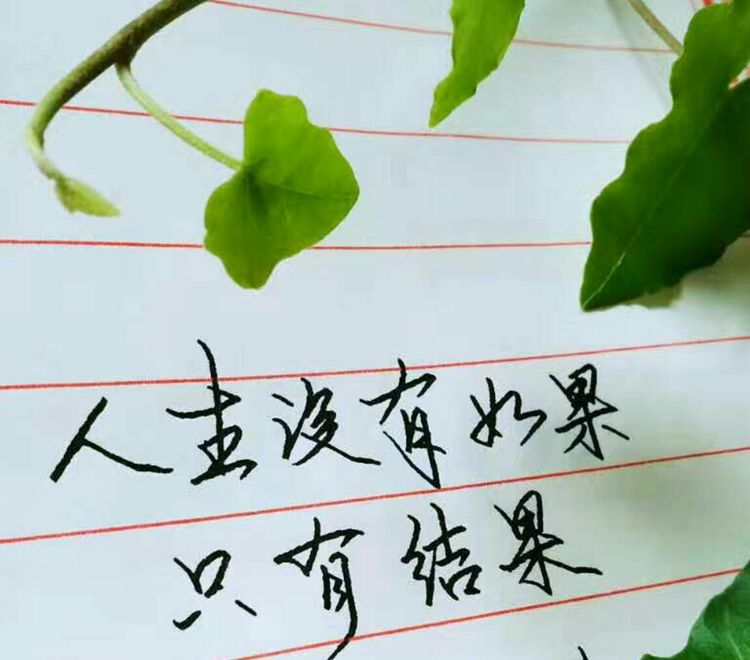 人生没有如果
只有结果